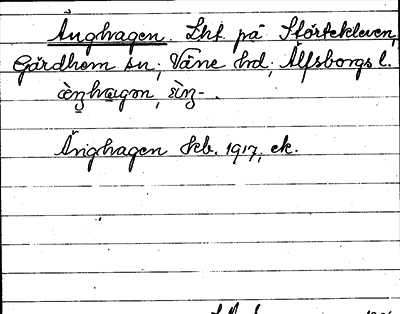 Änghagen. Lht. på Störtekleven,
Gärdhem sn; Väne hd; Älfsborgs l.
Änghagen Skb. 1917, ek.